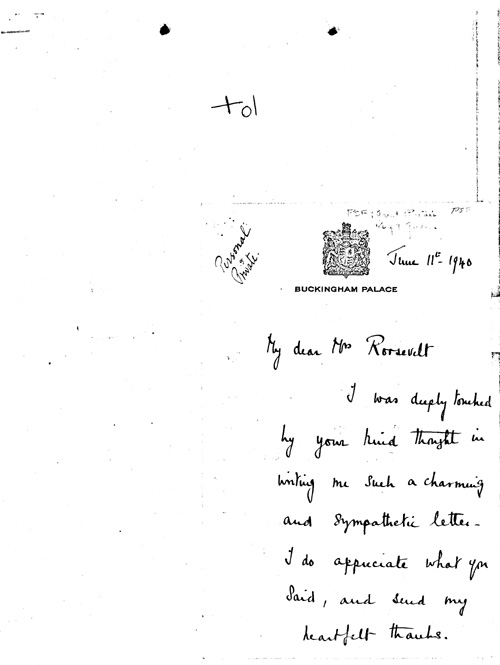 +01
PSF: Great Britain PSF
King & Queen
Personal
&
Private.
June 11th 1940
BUCKINGHAM PALACE
My dear Mrs Roosevelt
I was deeply touched
by your kind thought in
writing me such a charming
and sympathetic letter-
I do appreciate what you
said, and send my
heartfelt thanks.